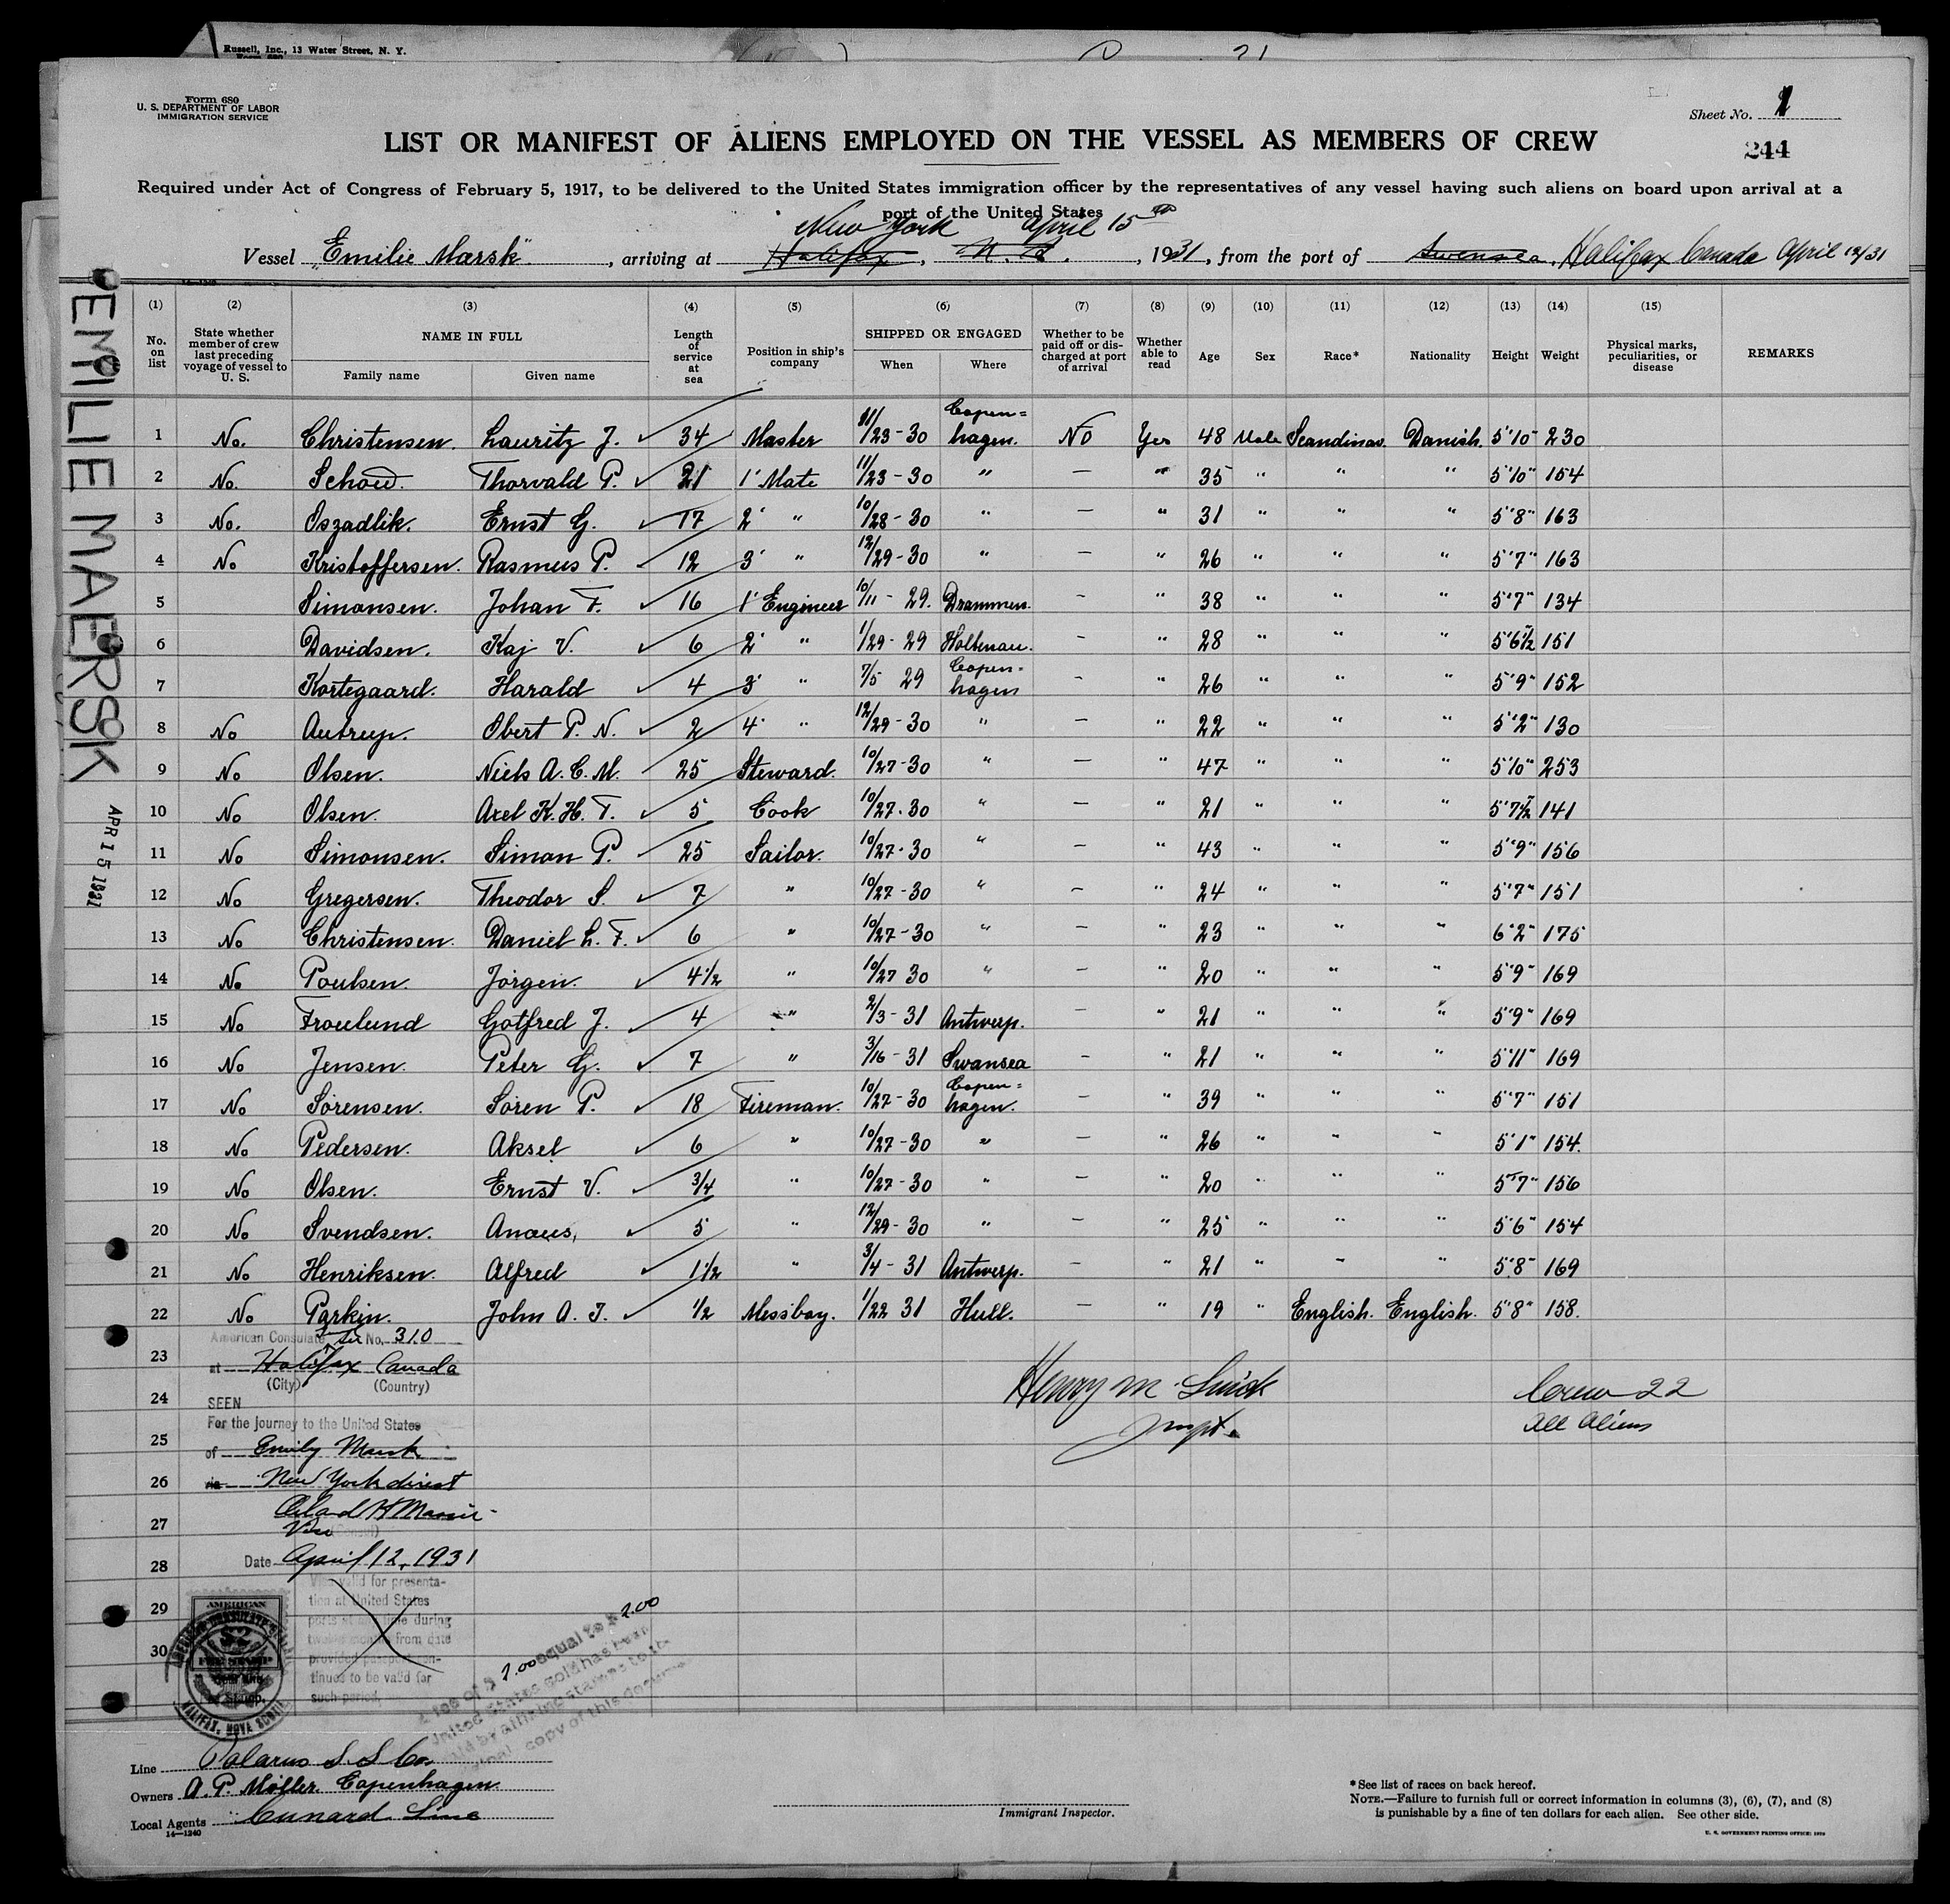 Russell, Inc., 13 Water Street, N. Y.
Form 680
U. S. DEPARTMENT OF LABOR
IMMIGRATION SERVICE
Sheet No. 1
244
LIST OR MANIFEST OF ALIENS EMPLOYED ON THE VESSEL AS MEMBERS OF CREW
Required under Act of Congress of February 5, 1917, to be delivered to the United States immigration officer by the representatives of any vessel having such aliens on board upon arrival at a
port of the United States
New York April 15th
Vessel "Emilie Mærsk", arriving at Halifax, N. S., 1931, from the port of Swansea, Halifax Canada April 12/31
EMILIE MAERSK
APR 15 1931
(1) (2) (3) (4) (5) (6) (7) (8) (9) (10) (11) (12) (13) (14) (15)
No. on list
State whether member of crew last preceding voyage of vessel to U. S.
NAME IN FULL
Family name
Given name
Length of service at sea
Position in ship's company
SHIPPED OR ENGAGED
When
Where
Whether to be paid off or discharged at port of arrival
Whether able to read
Age
Sex
Race*
Nationality
Height
Weight
Physical marks, peculiarities, or disease
REMARKS
1 No. Christensen. Lauritz J. ✓ 34 Master 11/23-30 Copen=hagen. No Yes 48 Male Scandinav. Danish. 5'10" 230
2 No. Schou. Thorvald P. ✓ 21 1' Mate 11/23-30 " — " 35 " " " 5'10" 154
3 No. Oszadlik. Ernst G. ✓ 17 2' " 10/28-30 " — " 31 " " " 5'8" 163
4 No Kristoffersen. Rasmus P. ✓ 12 3' " 12/29-30 " — " 26 " " " 5'7" 163
5 Simonsen. Johan F. ✓ 16 1' Engineer 10/11-29. Drammen. - " 38 " " " 5'7" 134
6 Davidsen. Kaj V. ✓ 6 2' " 1/29-29 Holtenau. - " 28 " " " 5'6½" 151
7 Kortegaard. Harald ✓ 4 3' " 7/5 29 Copen-hagen - " 26 " " " 5'9" 152
8 No Autrup. Obert P. N. ✓ 2 4' " 12/29-30 " — " 22 " " " 5'2" 130
9 No Olsen. Niels A. C. M. ✓ 25 Steward. 10/27-30 " — " 47 " " " 5'10" 253
10 No Olsen. Axel K. H. F. ✓ 5 Cook 10/27-30 " — " 21 " " " 5'7½" 141
11 No Simonsen. Simon P. ✓ 25 Sailor. 10/27-30 " — " 43 " " " 5'9" 156
12 No Gregersen. Theodor S. ✓ 7 " 10/27-30 " — " 24 " " " 5'7" 151
13 No Christensen. Daniel L. F. ✓ 6 " 10/27-30 " — " 23 " " " 6'2" 175
14 No Poulsen. Jörgen. ✓ 4½ " 10/27 30 " — " 20 " " " 5'9" 169
15 No Froulund Gotfred J. ✓ 4 " 2/3-31 Antwerp. - " 21 " " " 5'9" 169
16 No Jensen. Peter G. ✓ 7 " 3/16-31 Swansea - " 21 " " " 5'11" 169
17 No Sörensen. Sören P. ✓ 18 Fireman. 10/27-30 Copen=hagen. - " 39 " " " 5'7" 151
18 No Pedersen. Aksel ✓ 6 " 10/27-30 " — " 26 " " " 5'1" 154.
19 No Olsen. Ernst V. ✓ 3/4 " 10/27-30 " — " 20 " " " 5'7" 156
20 No Svendsen. ✓ 5 " 12/29-30 " — " 25 " " " 5'6" 154
21 No Henriksen. Alfred ✓ 1½ " 3/4-31 Antwerp. - " 21 " " " 5'8" 169
22 No Parkin. John A. T. ✓ ½ Messboy. 1/22 31 Hull. - " 19 " English. English. 5'8" 158.
23
24
25
26
27
28
29
30
American Consulate No. 310
at Halifax Canada
(City) (Country)
SEEN
For the journey to the United States
of Emily Marsk
via New York direct
Vice
Date April 12, 1931
Visa valid for presenta-
tion at United States
ports at any time during
twelve months from date
provided passport con-
tinues to be valid for
such period.
AMERICAN
$2
FEE STAMP
HALIFAX, NOVA SCOTIA
A fee of $ 2.00 equal to $ 2.00
United States gold has been
paid by affixing stamps to the
copy of this document
Henry M. Smick
Inspt.
Crew 22
All Aliens
Line Polarus S. S. Co.
Owners A. P. Möller. Copenhagen
Local Agents Cunard Line
14—1240
Immigrant Inspector.
*See list of races on back hereof.
NOTE.—Failure to furnish full or correct information in columns (3), (6), (7), and (8)
is punishable by a fine of ten dollars for each alien. See other side.
U. S. GOVERNMENT PRINTING OFFICE: 1929